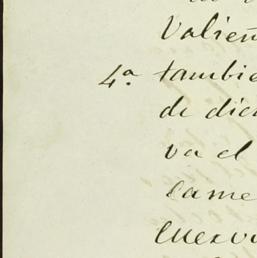 Valien
4ª. tambie
de dic
va el
came
cuerv